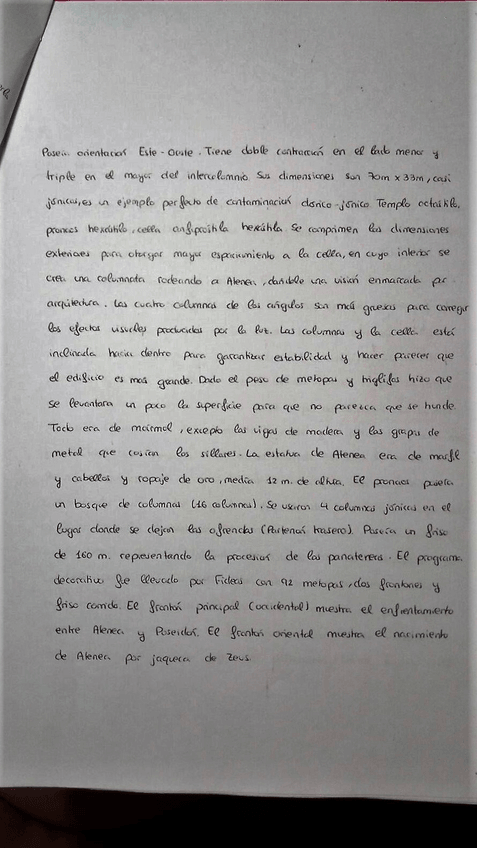 Poseía orientación Este-Oeste. Tiene doble contracción en el lado menor y
triple en el mayor del intercolumnio. Sus dimensiones son 70m x 33m, casi
jónicas, es un ejemplo perfecto de contaminación dórico-jónico. Templo octástilo,
pronaos hexástilo, cella anfipróstila hexástila. Se comprimen las dimensiones
exteriores para otorgar mayor espaciamiento a la cella, en cuyo interior se
crea una columnata rodeando a Atenea, dándole una visión enmarcada por
arquitectura. Las cuatro columnas de los ángulos son más gruesas para corregir
los efectos visuales producidos por la luz. Las columnas y la cella está
inclinada hacia dentro para garantizar estabilidad y hacer parecer que
el edificio es más grande. Dado el peso de metopas y triglifos hizo que
se levantara un poco la superficie para que no parezca que se hunde.
Todo era de mármol, excepto las vigas de madera y las grapas de
metal que cosían los sillares. La estatua de Atenea era de marfil
y cabellos y ropaje de oro, medía 12 m. de altura. El pronaos poseía
un bosque de columnas (16 columnas). Se usaron 4 columnas jónicas en el
lugar donde se dejan las ofrendas (Partenós trasero). Poseía un friso
de 160 m. representando la procesión de las panateneas. El programa
decorativo fue llevado por Fideas con 92 metopas, dos frontones y
friso corrido. El frontón principal (occidental) muestra el enfrentamiento
entre Atenea y Poseidón. El frontón oriental muestra el nacimiento
de Atenea por jaqueca de Zeus.